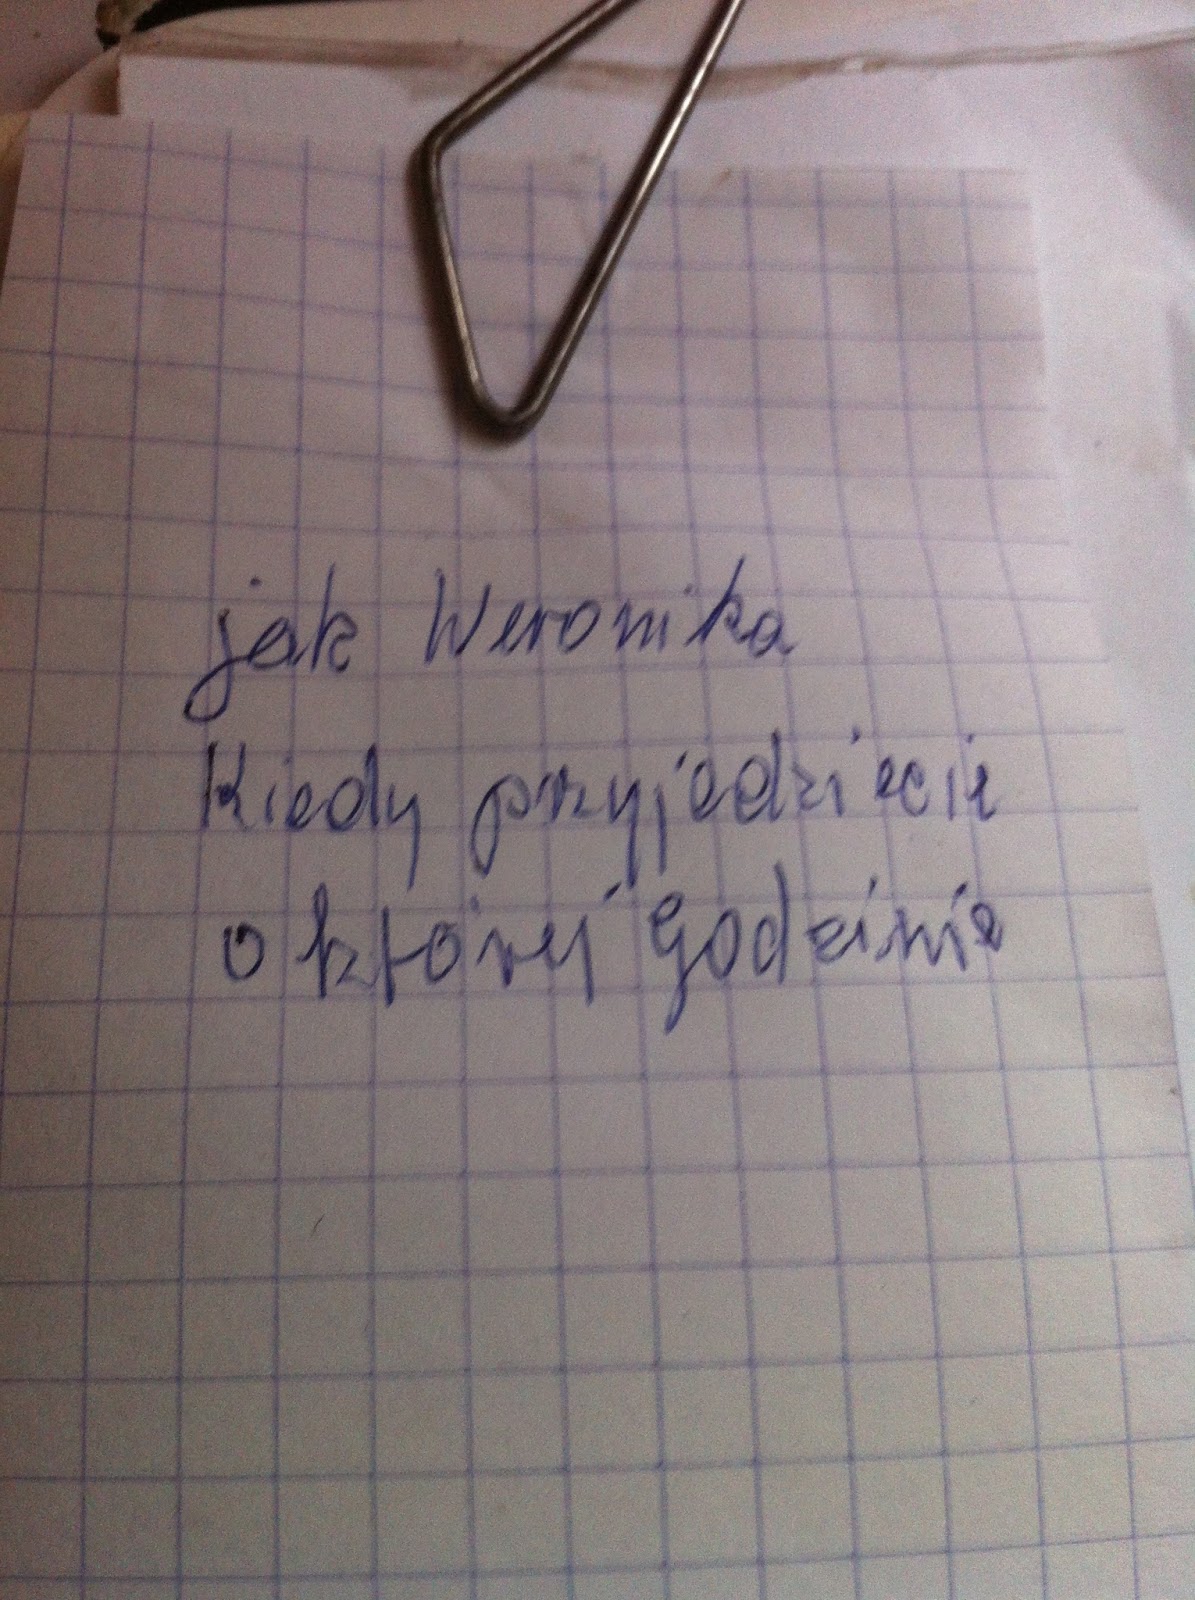 jak Weronika
Kiedy przyjedziecie
o której godzinie